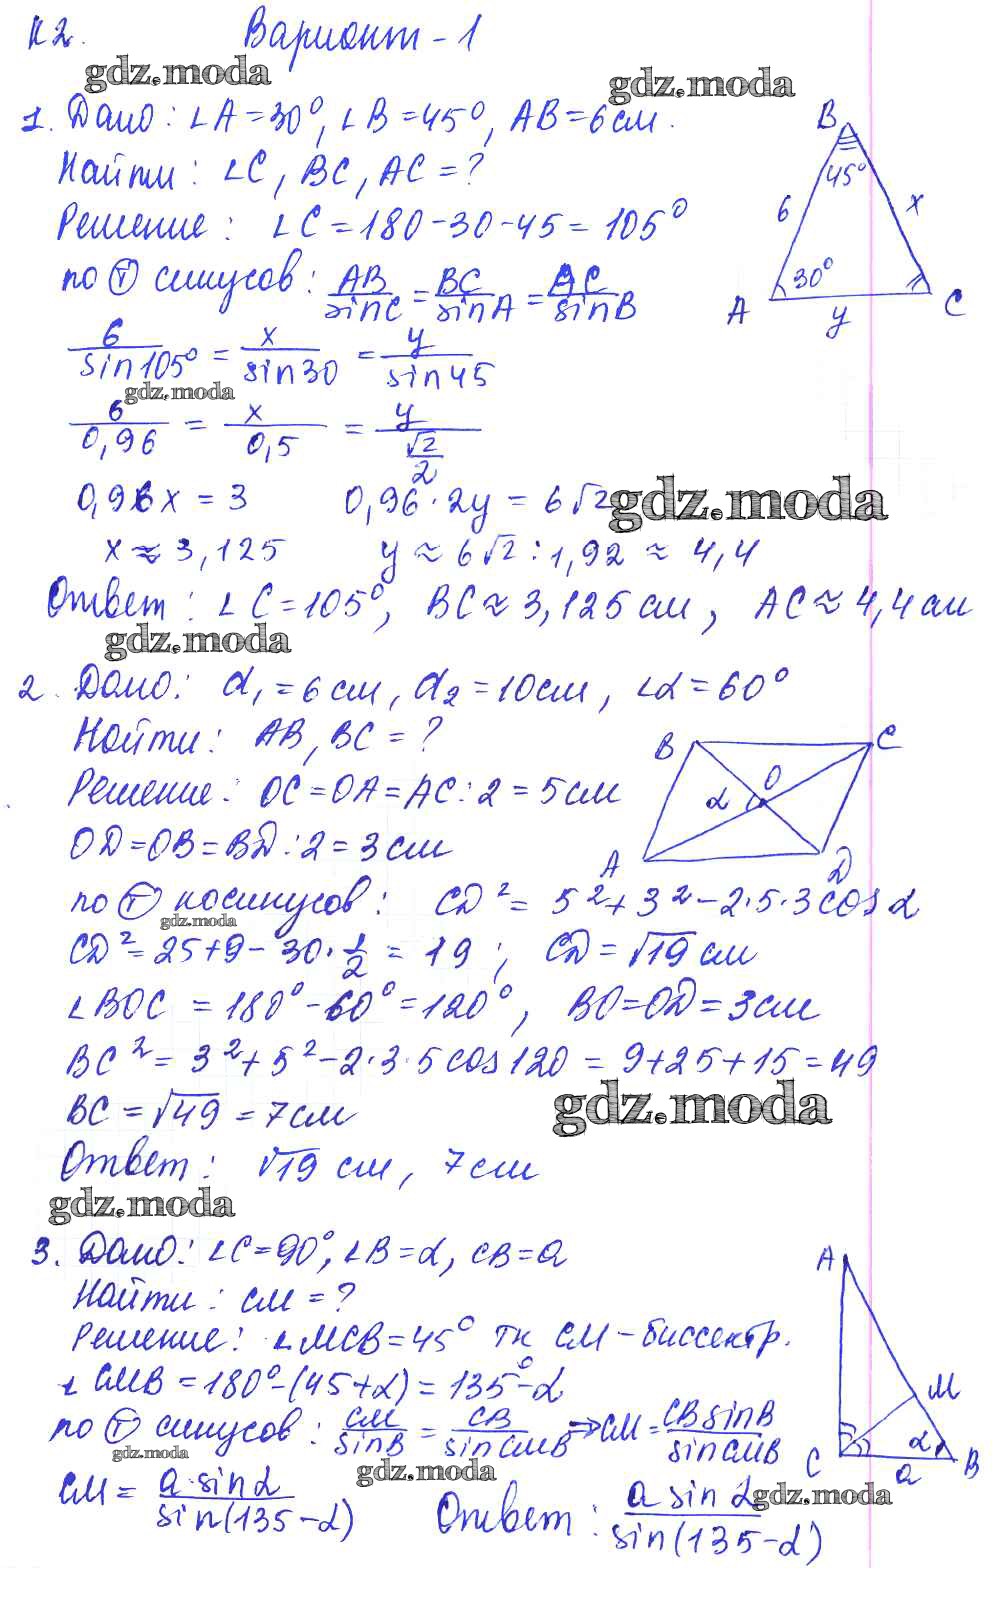 К2. Вариант - 1
gdz.moda
gdz.moda
1. Дано: ∠A = 30°, ∠B = 45°, AB = 6 см.
Найти: ∠C, BC, AC = ?
Решение: ∠C = 180 - 30 - 45 = 105°
по Ⓣ синусов: AB/sinC = BC/sinA = AC/sinB
6/sin105° = x/sin30 = y/sin45
gdz.moda
6/0,96 = x/0,5 = y/(√2/2)
0,96x = 3 0,96·2y = 6√2
gdz.moda
x ≈ 3,125 y ≈ 6√2 : 1,92 ≈ 4,4
Ответ: ∠C = 105°, BC ≈ 3,125 см, AC ≈ 4,4 см
gdz.moda
B
45°
6
x
30°
A
y
C
2. Дано: d₁ = 6 см, d₂ = 10 см, ∠α = 60°
Найти: AB, BC = ?
Решение: OC = OA = AC : 2 = 5 см
OD = OB = BD : 2 = 3 см
по Ⓣ косинусов: CD² = 5² + 3² - 2·5·3 cos α
gdz.moda
CD² = 25 + 9 - 30 · 1/2 = 19 ; CD = √19 см
∠BOC = 180° - 60° = 120°, BO = OD = 3 см
BC² = 3² + 5² - 2·3·5 cos 120 = 9 + 25 + 15 = 49
BC = √49 = 7 см
gdz.moda
Ответ: √19 см, 7 см
gdz.moda
B
C
O
α
A
D
3. Дано: ∠C = 90°, ∠B = α, CB = a
Найти: CM = ?
Решение: ∠MCB = 45° тк CM - биссектр.
∠CMB = 180° - (45 + α) = 135° - α
по Ⓣ синусов: CM/sinB = CB/sinCMB ⇒ CM = CB sinB/sinCMB
gdz.moda
gdz.moda
CM = a·sinα/sin(135 - α) Ответ: a sin α/sin(135 - α)
gdz.moda
A
M
α
C
a
B